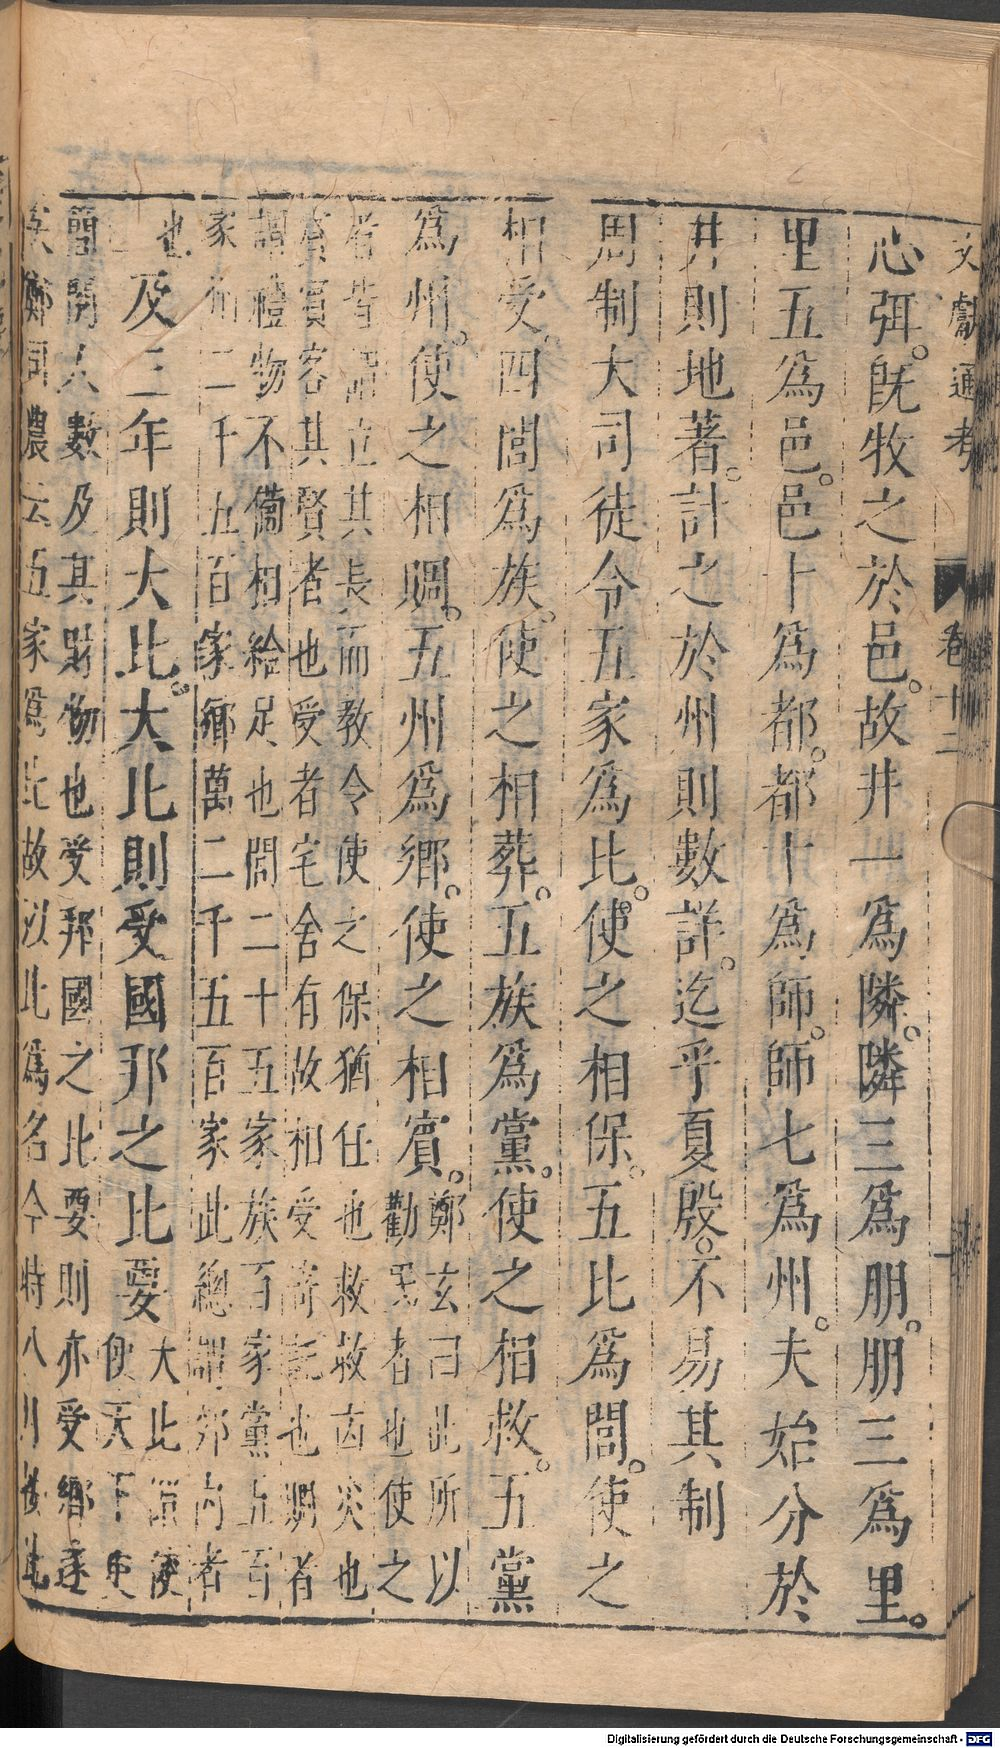 文獻通考 卷十二
心弭。既牧之於邑。故井一爲隣。隣三爲朋。朋三爲里。
里五爲邑。邑十爲都。都十爲師。師七爲州。夫始分於
井則地著。計之於州則數詳。迄乎夏殷。不易其制
周制大司徒令五家爲比。使之相保。五比爲閭。使之
相受。四閭爲族。使之相葬。五族爲黨。使之相救。五黨
爲州。使之相賙。五州爲鄉。使之相賓。
鄭玄曰此所以
勸民者也使之
者皆謂立其長而教令使之保猶任也救救凶災也
賓賓客其賢者也受者宅舍有故相受寄託也賙者
謂禮物不備相給足也閭二十五家族百家黨五百
家州二千五百家鄉萬二千五百家此總謂郊內者
也
及三年則大比。大比則受國邦之比要
大比謂使
使天下更
簡閱人數及其財物也受邦國之比要則亦受鄉遂
矣鄭司農云五家爲比故以比爲名今時八月案比
Digitalisierung gefördert durch die Deutsche Forschungsgemeinschaft - DFG